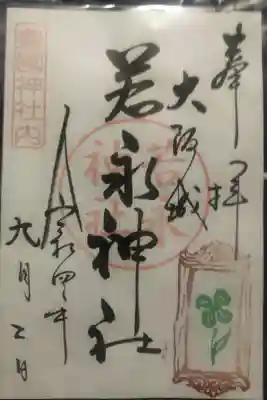 奉拝
大阪城
若永神社
令和四年
九月二日
豊國神社内